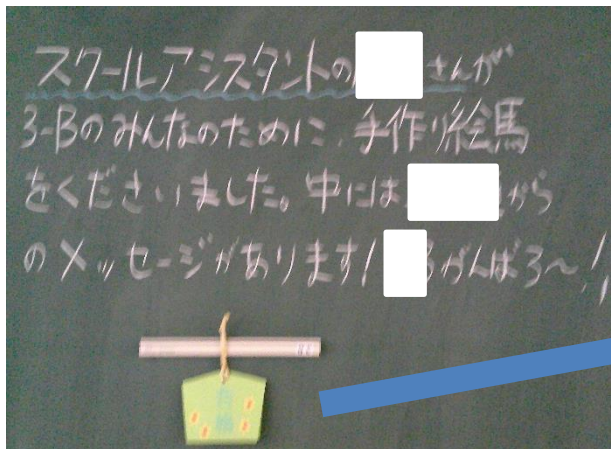 スクールアシスタントの さんが
3-Bのみんなのために、手作り絵馬
をくださいました。中には から
のメッセージがあります! がんばろ〜!!